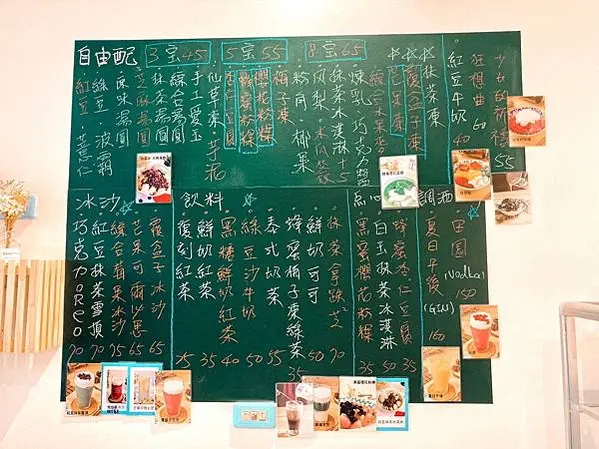 自由配 3宝45 5宝55 8宝65
紅豆·薏仁
綠豆·波霸
原味湯圓
芝麻湯圓
抹茶湯圓
綜合湯圓
手工愛玉
仙草凍·芋泥
蜂蜜粉粿
櫻花粉粿
柚子凍
粉角·椰果
鳳梨·木瓜
抹茶冰淇淋+5
煉乳·巧克力醬
綜合水果
芒果凍
覆盆子凍
抹茶凍
紅豆牛奶 40
狂想曲 60
少女的祈禱 55
冰沙
巧克力OREO 70
紅豆抹茶雪頂 70
綜合蘋果冰沙 75
芒果可爾必思 65
覆盆子冰沙 65
飲料
復刻紅茶 25
鮮奶紅茶 35
黑糖鮮奶紅茶 40
綠豆沙牛奶 50
泰式奶茶 55
蜂蜜柚子棗綠茶 35
鮮奶可可 50
抹茶拿鐵 70
點心
黑蜜櫻花粉粿 35
白玉抹茶冰淇淋 50
蜂蜜杏仁豆腐 35
調酒
夏日午後 (GIN) 160
田園 (Vodka) 150